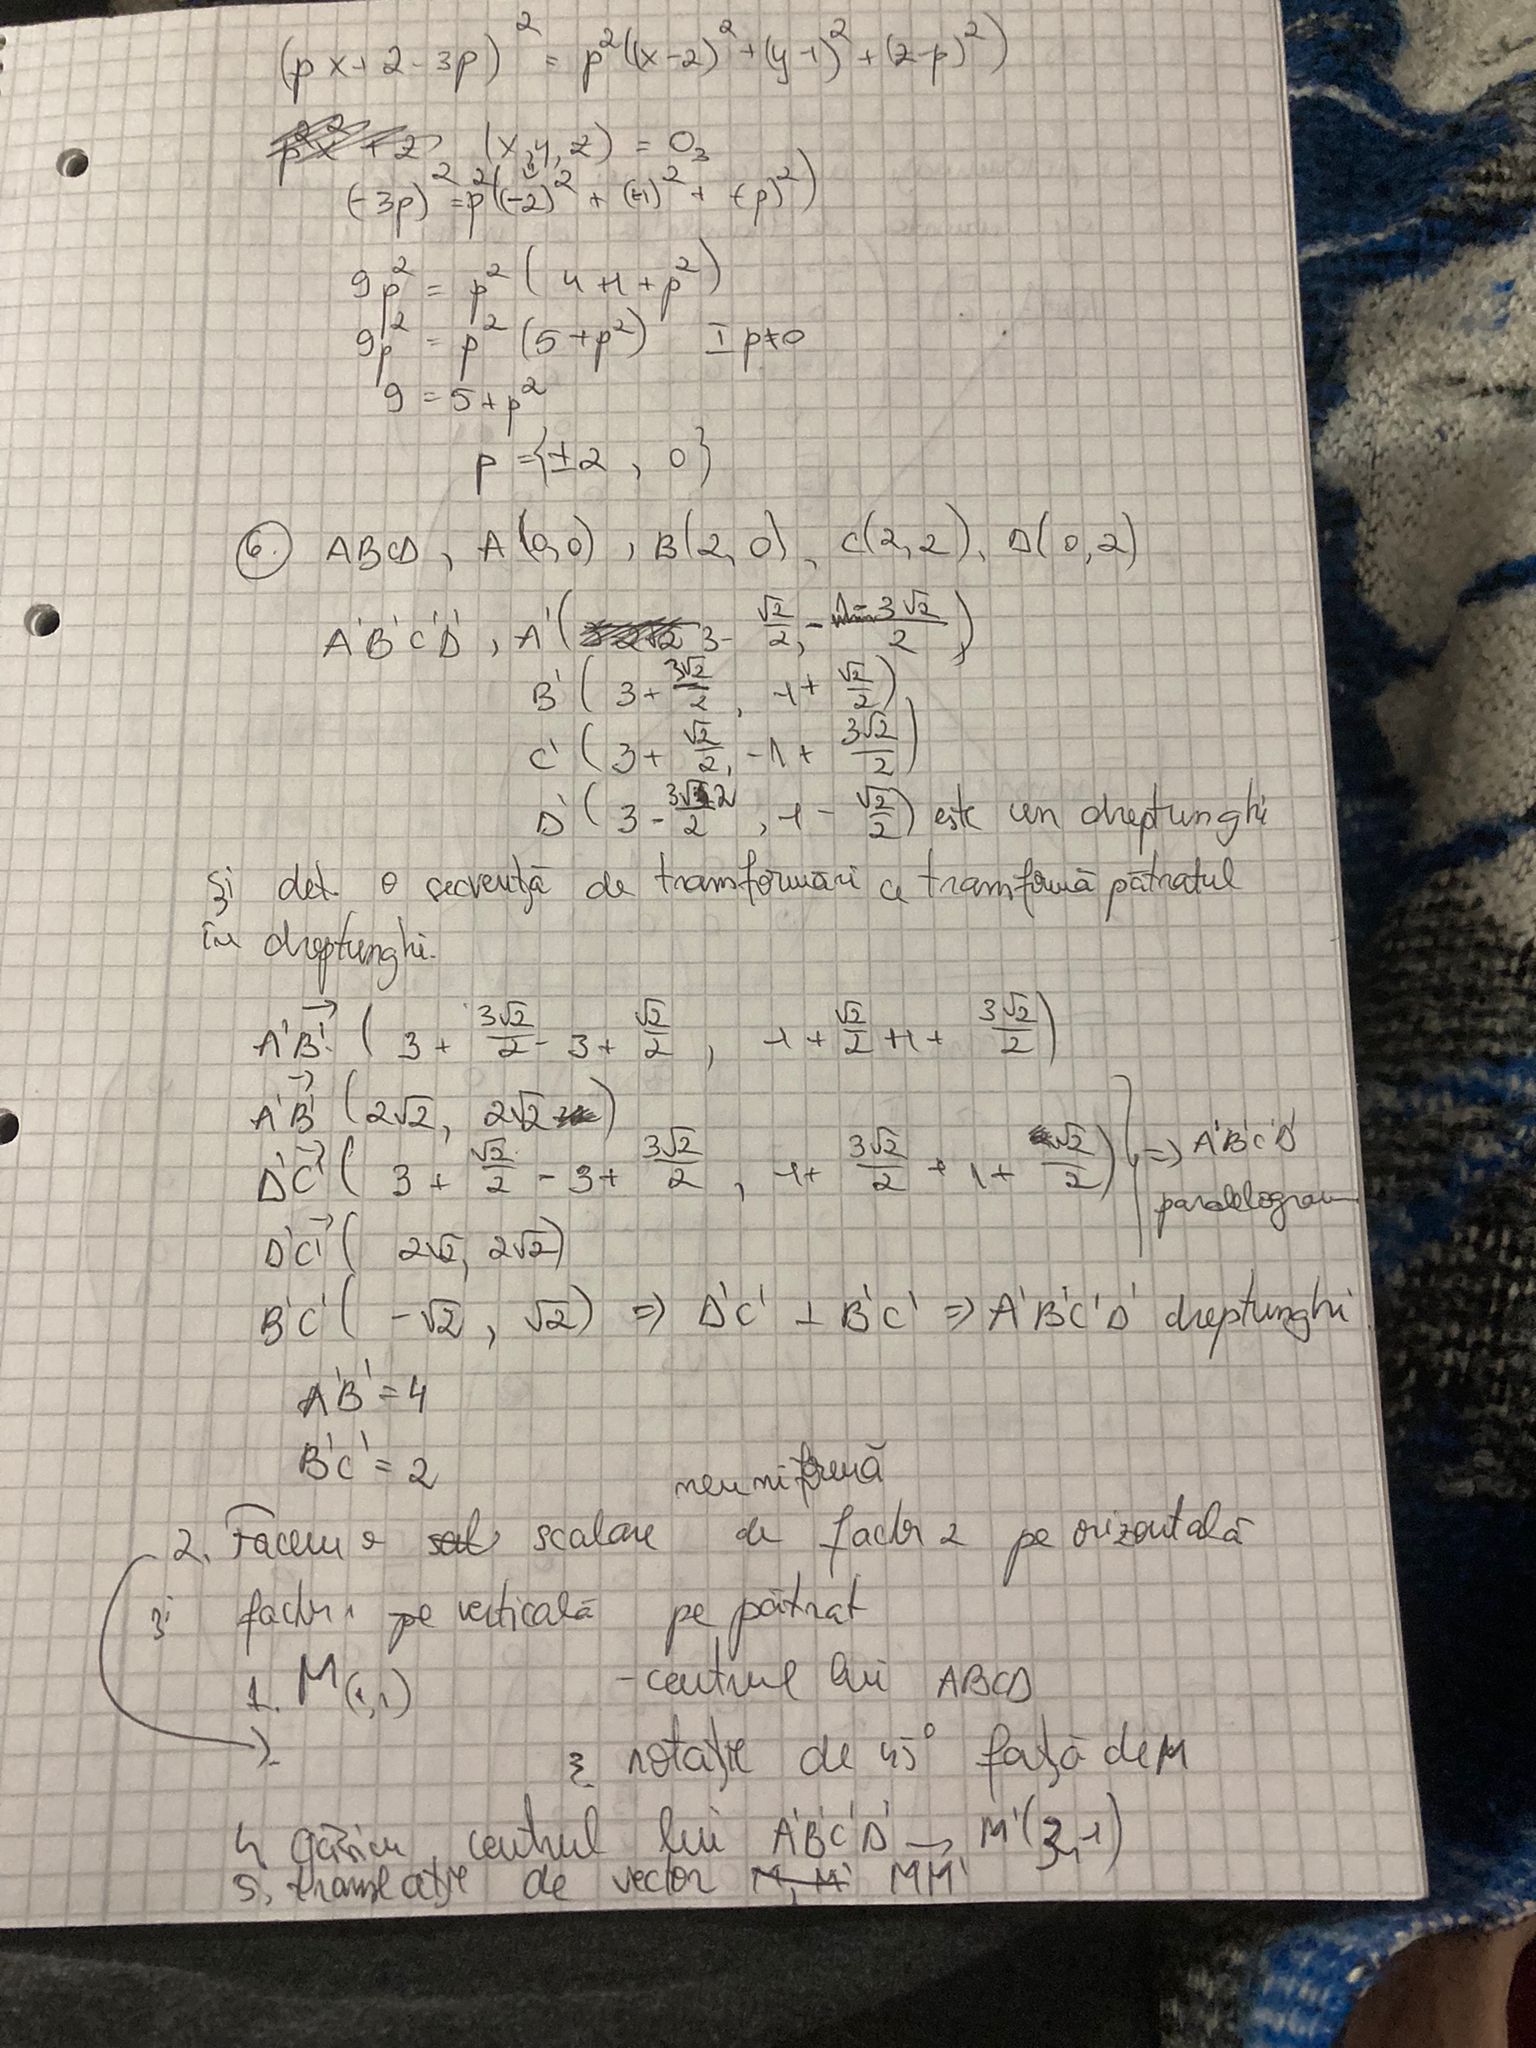 (px+2-3p)² = p²((x-2)²+(y-1)²+(z-p)²)
(x,y,z) = O₃
(-3p)² = p²((-2)² + (-1)² + (-p)²)
9p² = p² (4+1+p²)
9p² = p² (5+p²) I p≠0
9 = 5+p²
p = {±2, 0}
6. ABCD, A(0,0), B(2,0), C(2,2), D(0,2)
A'B'C'D', A'( 3-√2/2, -1-3√2/2)
B'(3+3√2/2, -1+√2/2)
C'(3+√2/2, -1+3√2/2)
D'(3-3√2/2, -1-√2/2) este un dreptunghi
și det. o secvență de transformări ce transformă pătratul
în dreptunghi.
A'B' (3+3√2/2-3+√2/2, -1+√2/2+1+3√2/2)
A'B' (2√2, 2√2)
D'C' (3+√2/2-3+3√2/2, -1+3√2/2+1+√2/2) => A'B'C'D' paralelogram
D'C' (2√2, 2√2)
B'C' (-√2, √2) => D'C' ⊥ B'C' => A'B'C'D' dreptunghi
A'B' = 4
B'C' = 2
neuniformă
2. Facem o scalare de factor 2 pe orizontală
și factor 1 pe verticală pe pătrat
1. M(1,1) - centrul lui ABCD
3. rotație de 45° față de M
4. Găsim centrul lui A'B'C'D' → M'(3,-1)
5. translație de vector MM'